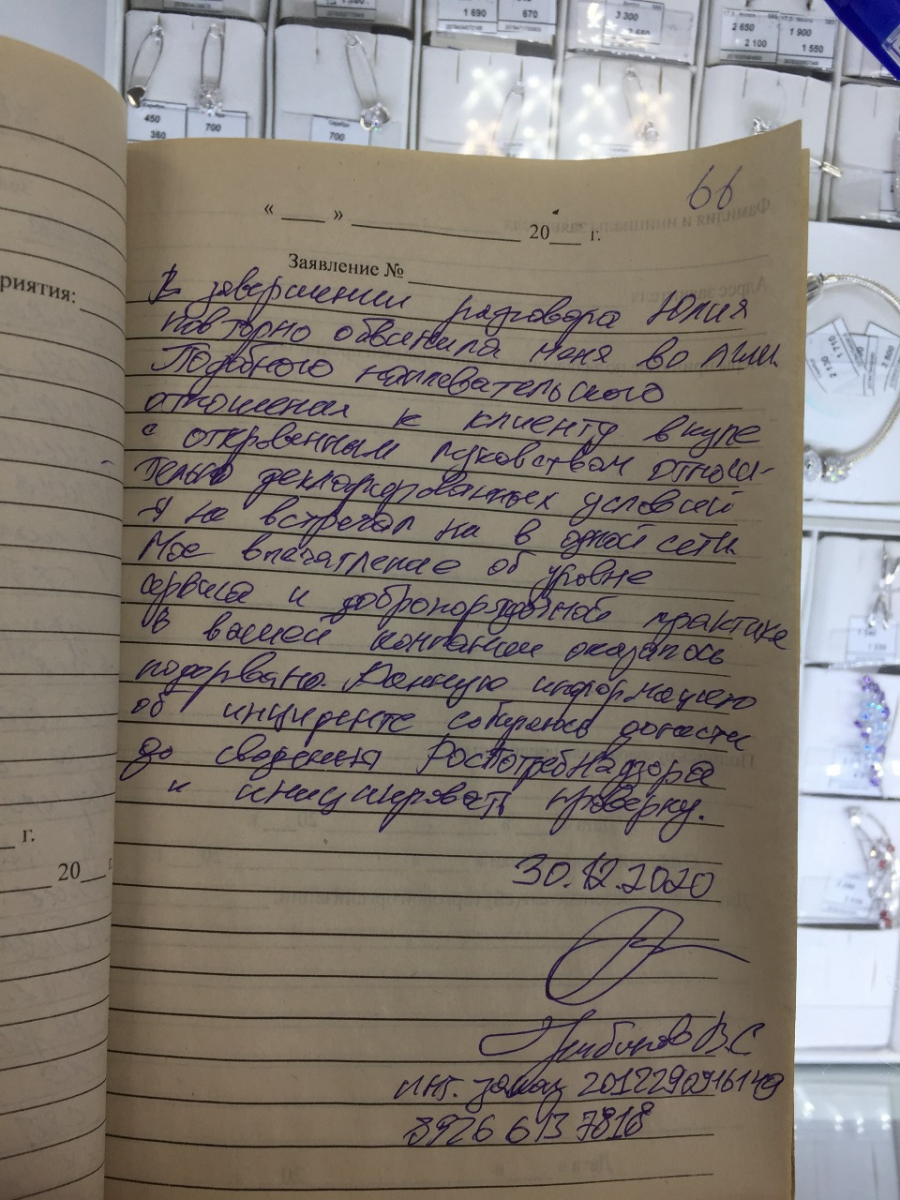 1 690
670
3 300
2 650
2 100
1 900
1 550
450
360
700
Серебро
700
66
« ___ » ______________ 20___ г.
Заявление № ______________
В завершении разговора Юлия
повторно обвинила меня во лжи.
Подобного наплевательского
отношения к клиенту вкупе
с откровенным лукавством относи-
тельно декларированных условий
я не встречал ни в одной сети.
Мое впечатление об уровне
сервиса и добропорядочной практике
в вашей компании оказалось
подорвано. Данную информацию
об инциденте собираюсь донести
до сведения РосПотребНадзора
и инициировать проверку.
30.12.2020
В.С
инт. заказ
8926 613 7818
риятия:
г.
20___ г.